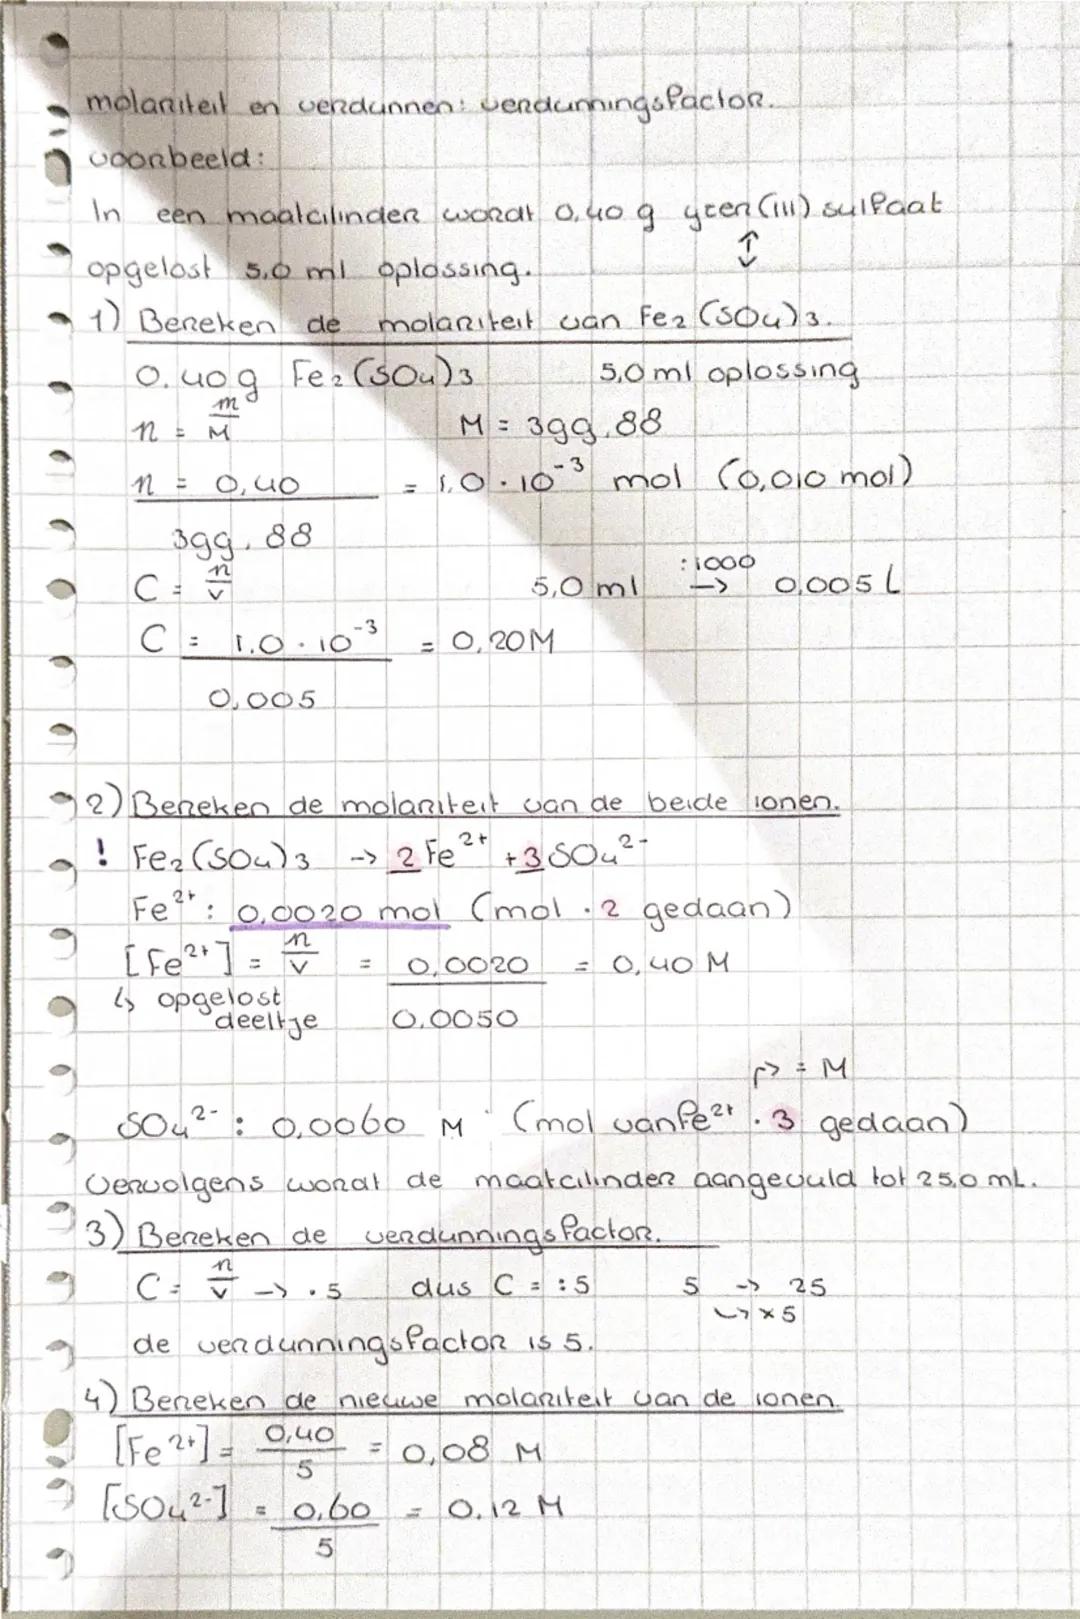 molariteit en verdunnen: verdunningsfactor.
voorbeeld:
In een maatcilinder wordt 0,40 g ijzer(III) sulfaat
↕
opgelost 5,0 ml oplossing.
1) Bereken de molariteit van Fe₂(SO₄)₃.
0,40g Fe₂(SO₄)₃ 5,0 ml oplossing
n = m/M M = 399,88
n = 0,40 / 399,88 = 1,0 · 10⁻³ mol (0,010 mol)
C = n/v 5,0 ml :1000 -> 0,005 L
C = 1,0 · 10⁻³ / 0,005 = 0,20M
2) Bereken de molariteit van de beide ionen.
! Fe₂(SO₄)₃ -> 2 Fe²⁺ + 3 SO₄²⁻
Fe²⁺: 0,0020 mol (mol · 2 gedaan)
[Fe²⁺] = n/v = 0,0020 / 0,0050 = 0,40 M
↳ opgelost
deeltje
↱ = M
SO₄²⁻ : 0,0060 M (mol van Fe²⁺ · 3 gedaan)
Vervolgens wordt de maatcilinder aangevuld tot 25,0 mL.
3) Bereken de verdunningsfactor.
C = n/v -> · 5 dus C = : 5 5 -> 25
↳ x 5
de verdunningsfactor is 5.
4) Bereken de nieuwe molariteit van de ionen.
[Fe²⁺] = 0,40 / 5 = 0,08 M
[SO₄²⁻] = 0,60 / 5 = 0,12 M